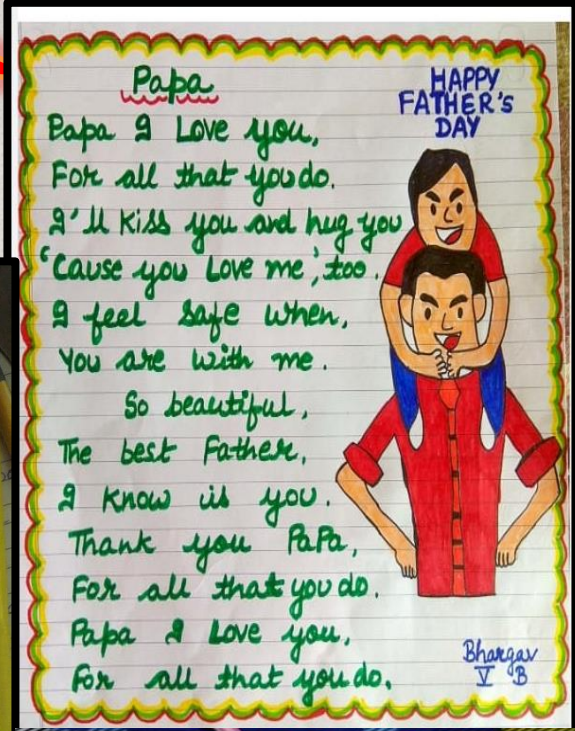 Papa
HAPPY
FATHER'S
DAY
Papa I Love you,
For all that you do.
I'll Kiss you and hug you
'Cause you Love me', too.
I feel safe when,
You are with me.
So beautiful,
The best Father,
I know is you.
Thank you PaPa,
For all that you do.
Papa I Love you,
For all that you do.
Bhargav
V B